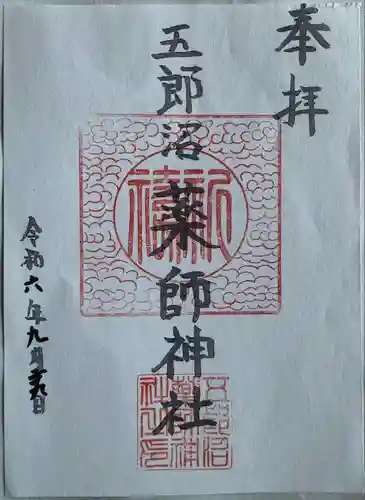 奉拝
五郎沼薬師神社
祈禱
五郎沼薬師神社之印
令和六年九月